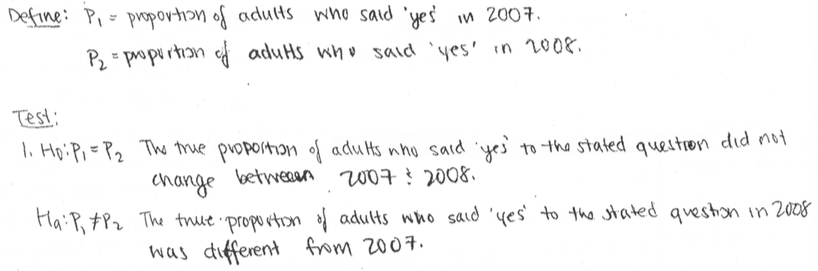 Define: P₁ = proportion of adults who said 'yes' in 2007.
P₂ = proportion of adults who said 'yes' in 2008.
Test:
1. H₀: P₁ = P₂ The true proportion of adults who said 'yes' to the stated question did not
change between 2007 & 2008.
Ha: P₁ ≠ P₂ The true proportion of adults who said 'yes' to the stated question in 2008
was different from 2007.